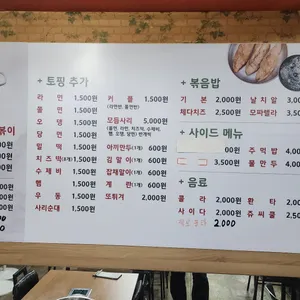 + 토핑 추가
라 면 1,500원
쫄 면 1,500원
오 뎅 1,500원
당 면 1,500원
밀 떡 1,500원
치즈떡(8개) 1,500원
수제비 1,500원
햄 1,500원
우 동 1,500원
사리순대 1,500원
커 플 1,500원
(라면반, 쫄면반)
모듬사리 5,000원
아끼만두(1개) 600원
김 말 이(1개) 600원
잡채말이(1개) 600원
계 란(1개) 600원
또뛰겨 2,000원
+ 볶음밥
기 본 2,000원
날치알 3,000원
체다치즈 2,500원
모짜렐라 3,500원
+ 사이드 메뉴
00원
주먹밥 4,000원
3,500원
물만두 4,000원
+ 음료
콜 라 2,500원
환 타 2,500원
사이다 2,500원
쥬씨쿨 2,500원
2,000
볶이